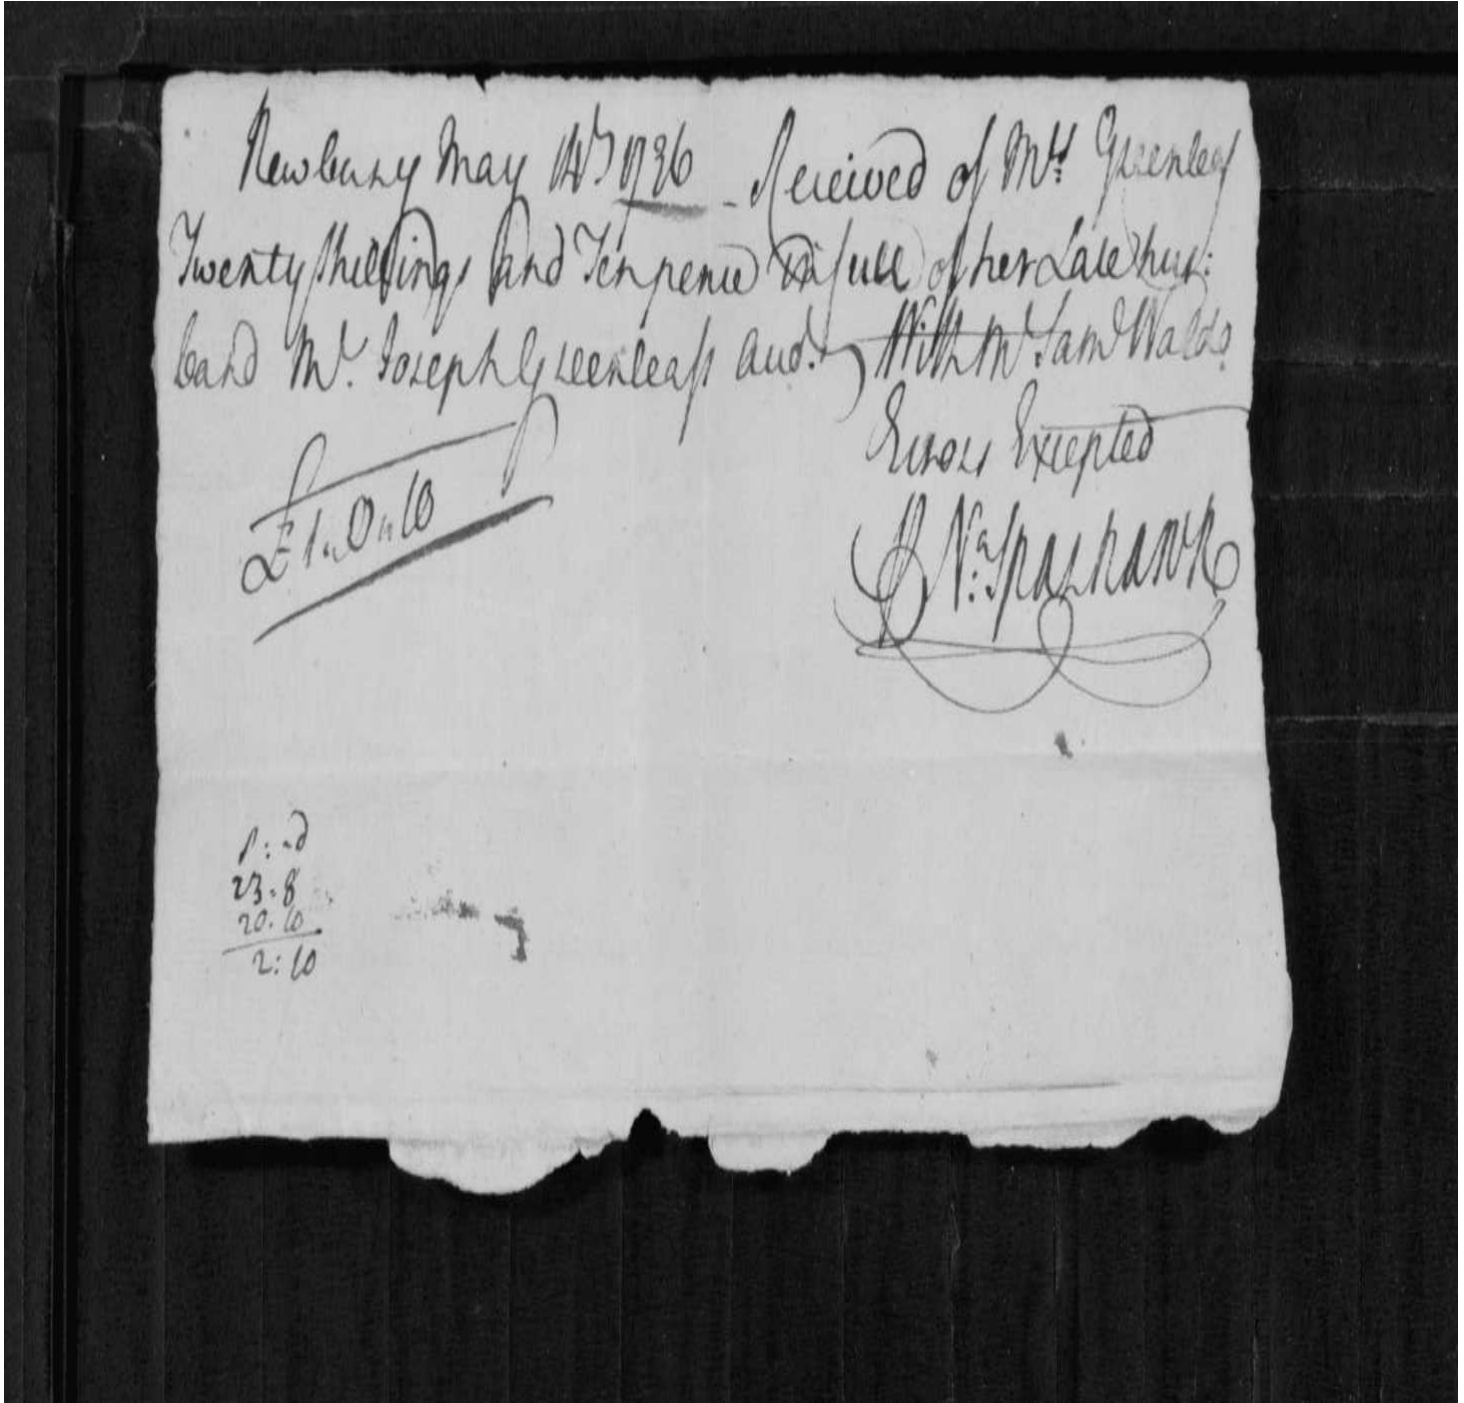 Newbury May 14th 1736 - Received of Mrs Greenleaf
Twenty shillings And Tenpence in full of her Late hus:
band Mr. Joseph Greenleafs Acct. With Mr Saml Waldo
Errors Excepted
£1"0"10
Na: Sparhawk
s : d
23 . 8
20 . 10
2 : 10